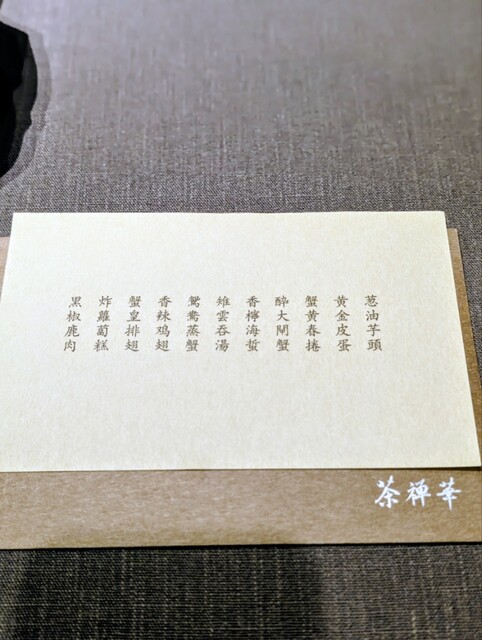 葱油芋頭
黄金皮蛋
蟹黄春捲
酔大閘蟹
香檸海蜇
雉雲吞湯
鴛鴦蒸蟹
香辣鸡翅
蟹皇排翅
炸蘿蔔糕
黒椒鹿肉
茶禅華